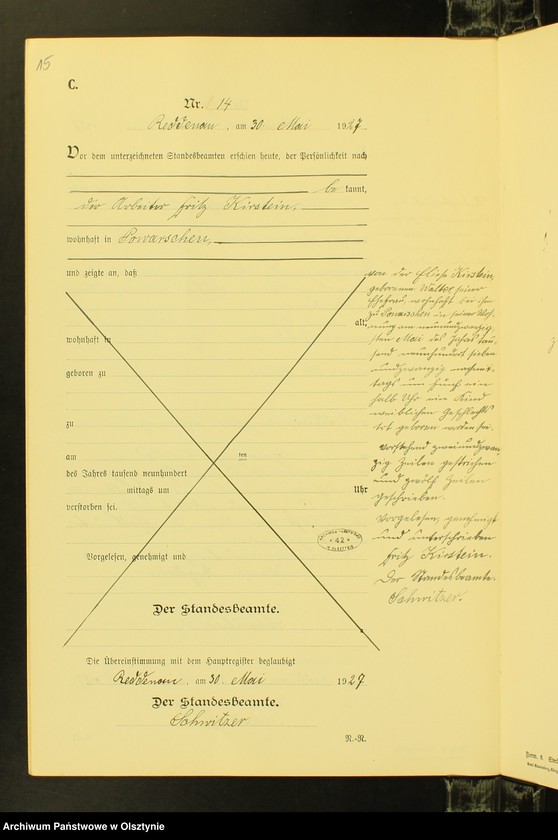 15
C.
Nr. 14
Reddenau, am 30 Mai 1927
Vor dem unterzeichneten Standesbeamten erschien heute, der Persönlichkeit nach
be kannt,
der Arbeiter Fritz Kirstein,
wohnhaft in Powarschen,
und zeigte an, daß
von der Eliese Kirstein,
geborenen Walter seiner
Ehefrau, wohnhaft bei ihm
zu Powarschen in seiner Woh-
nung am neunundzwanzig-
sten Mai des Jahres tau-
send neunhundert sieben-
undzwanzig nachmit-
tags um fünf ein
halb Uhr ein Kind
weiblichen Geschlechts
tot geboren worden sei.
Vorstehend zweiundzwan-
zig Zeilen gestrichen
und zwölf Zeilen
geschrieben.
Vorgelesen, genehmigt
und unterschrieben
Fritz Kirstein.
Der Standesbeamte.
Schwitzer.
alt,
wohnhaft in
geboren zu
zu
am ten
des Jahres tausend neunhundert
mittags um Uhr
verstorben sei.
42
Vorgelesen, genehmigt und
Der Standesbeamte.
Die Übereinstimmung mit dem Hauptregister beglaubigt
Reddenau, am 30. Mai 1927
Der Standesbeamte.
Schwitzer
N.-R.
Form. C.
Archiwum Państwowe w Olsztynie